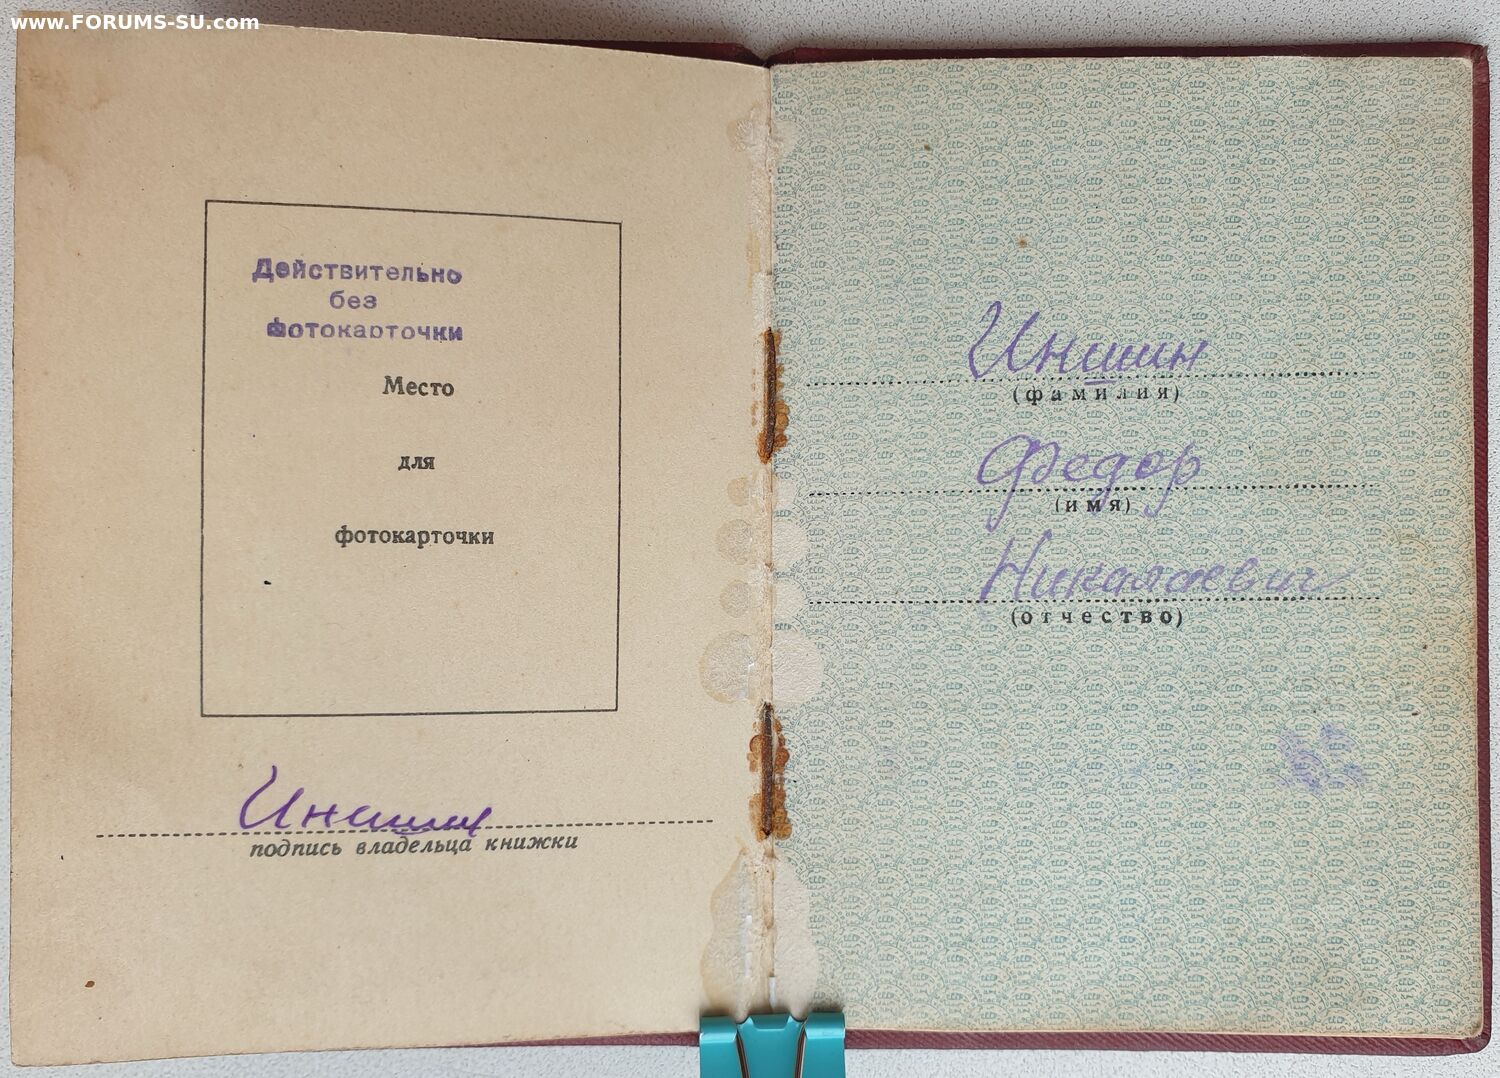 www.FORUMS-SU.com
Действительно
без
фотокарточки
Место
для
фотокарточки
Иншин
подпись владельца книжки
Иншин
(фамилия)
Федор
(имя)
Николаевич
(отчество)